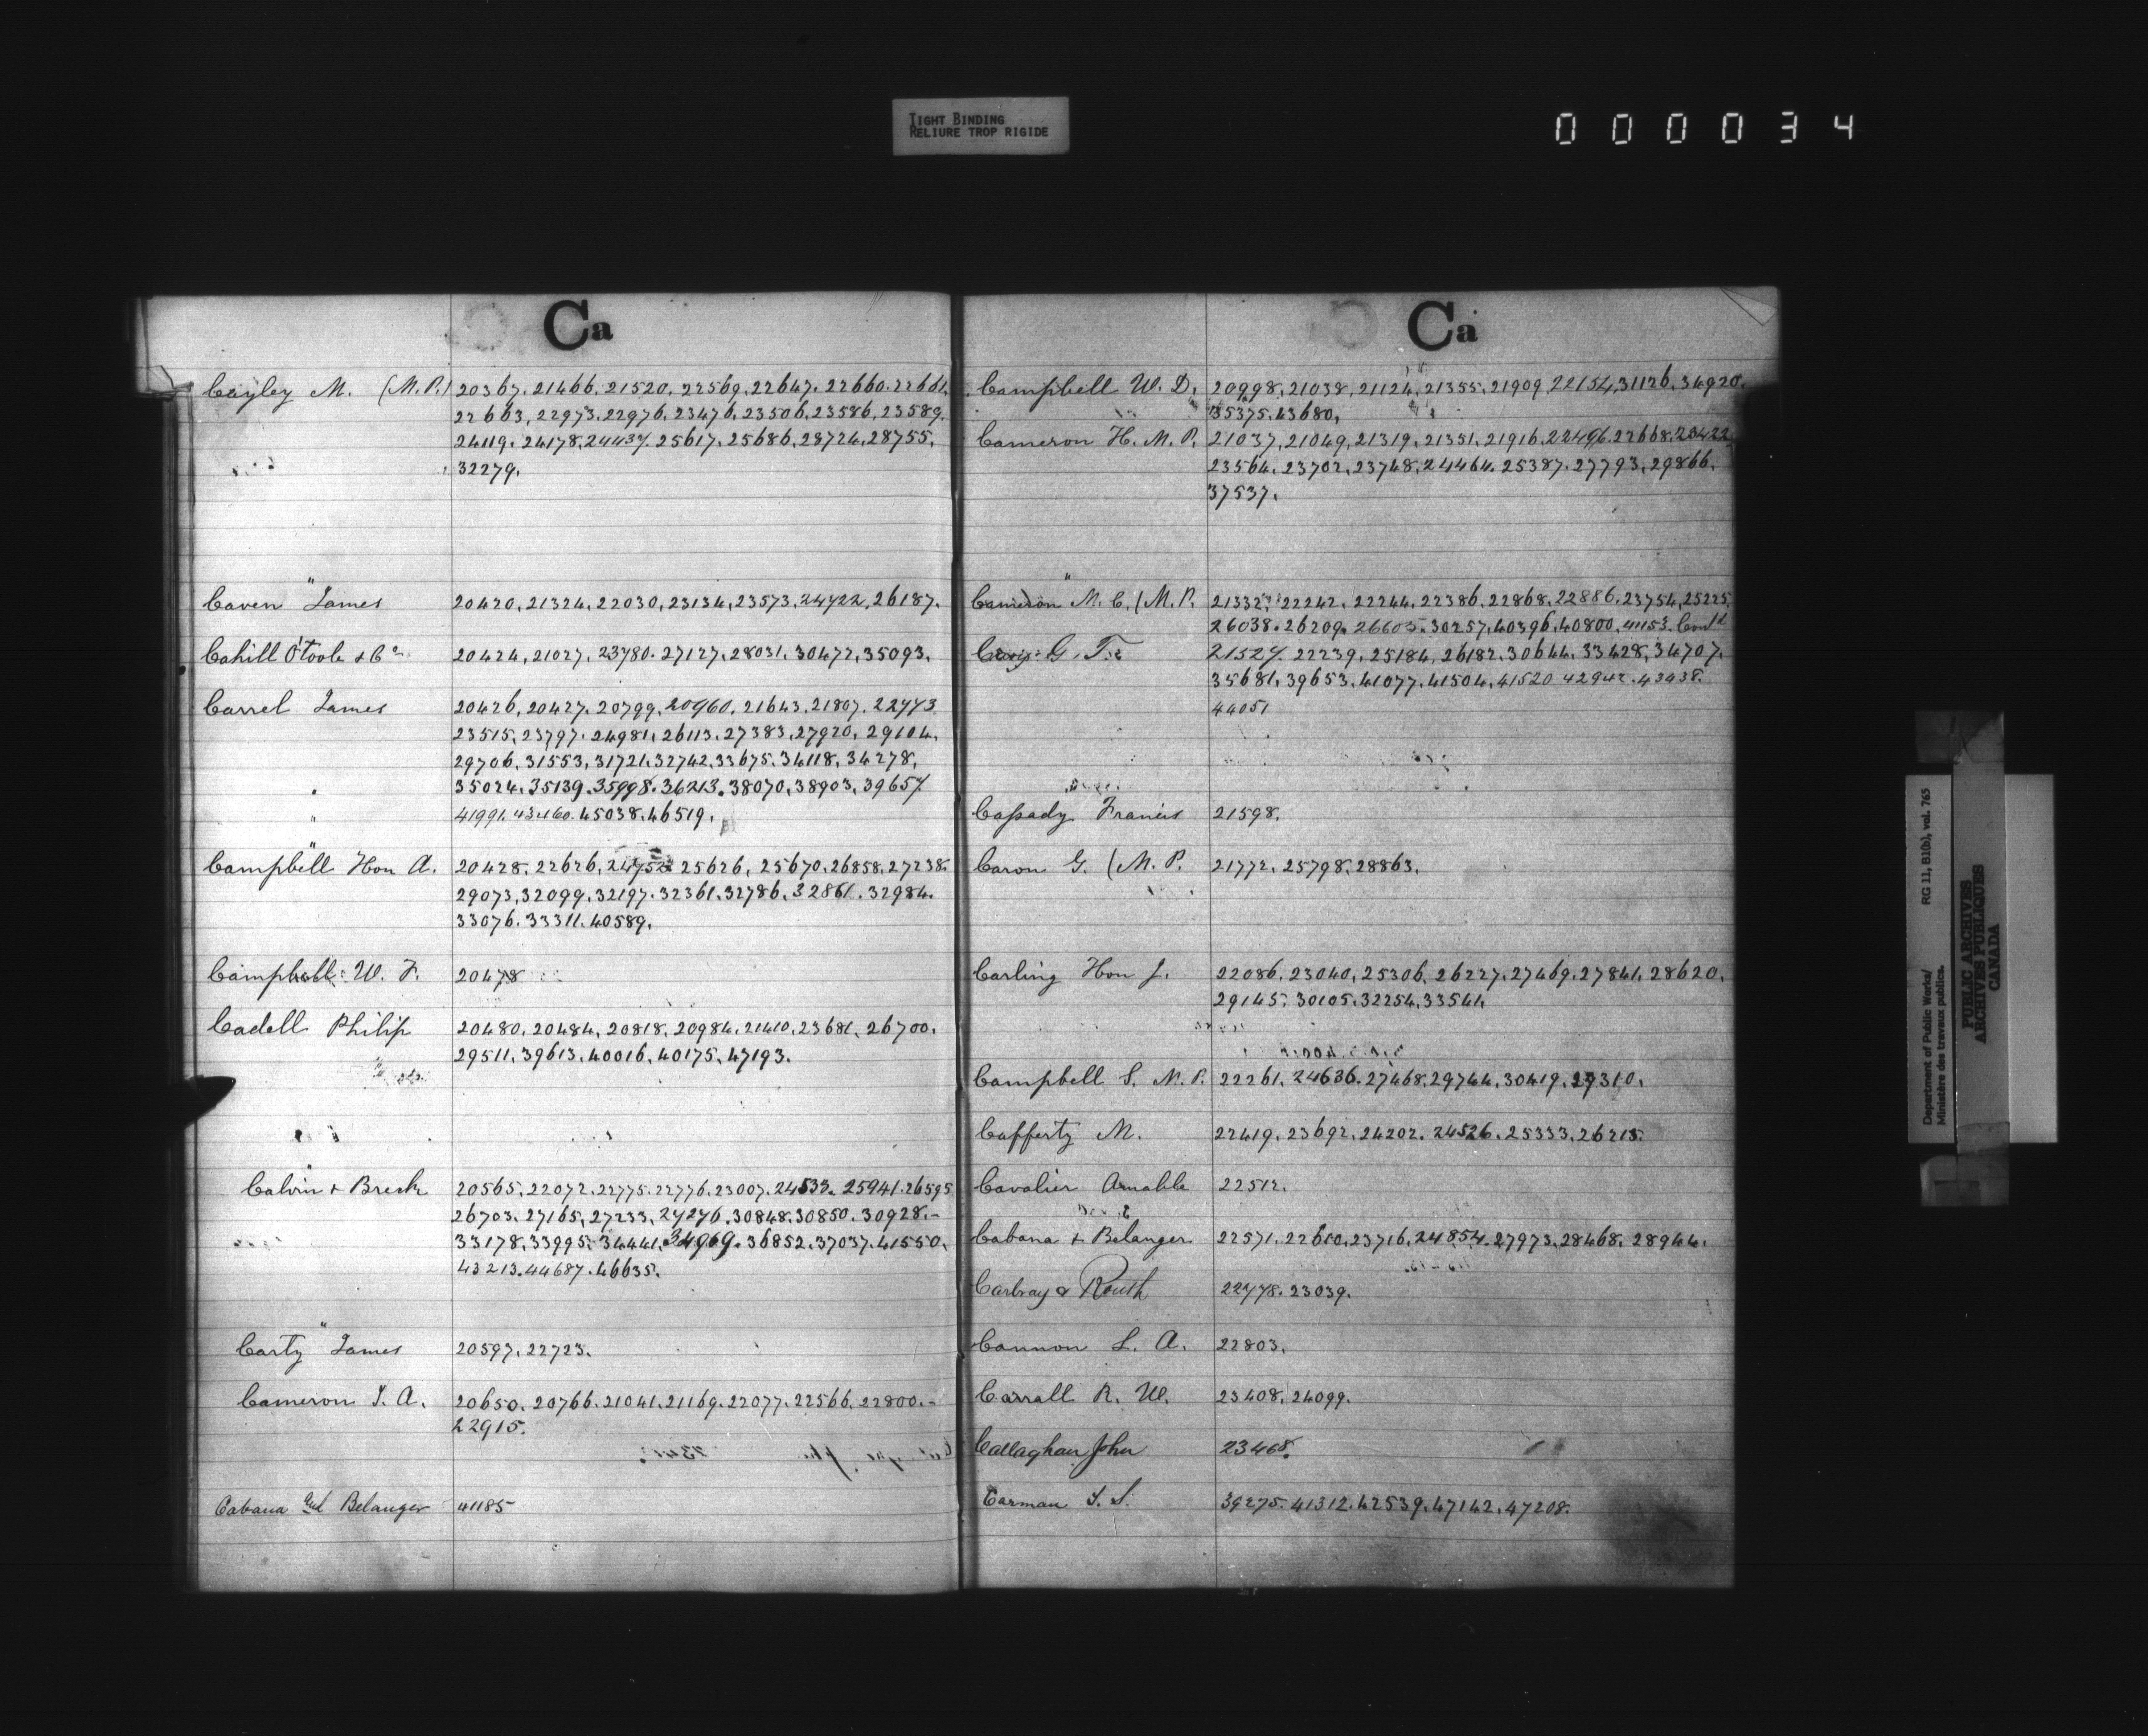 TIGHT BINDING
RELIURE TROP RIGIDE
000034
Ca
Cayley M. (M.P.) 20367. 21466. 21520. 22569. 22647. 22660. 22661.
22663, 22973. 22976. 23476. 23506. 23586, 23589.
24119. 24178. 24437. 25617. 25686. 28724. 28755.
32279.
Caven James 20420, 21324, 22030, 23134, 23573, 24722, 26187.
Cahill O'Toole & Co 20424, 21027, 23780. 27127. 28031. 30472, 35093.
Carrel James 20426, 20427. 20799. 20960. 21643. 21807. 22773
23515, 23797. 24981, 26113. 27383, 27920, 29104.
29706, 31553, 31721. 32742. 33675. 34118, 34278,
35024. 35139. 35998. 36213. 38070, 38903, 39657
41991. 43460. 45038. 46519.
Campbell Hon A. 20428. 22626, 25626, 25670. 26858. 27238.
29073, 32099. 32197. 32361. 32786. 32861. 32984.
33076. 33311. 40589.
Campbell W. F. 20478
Cadell Philip 20480. 20484, 20818, 20984. 21410. 23681, 26700.
29511, 39613. 40016, 40175, 47193.
Calvin & Breck 20565. 22072. 22775. 22776. 23007. 24533. 25941. 26595
26703. 27165, 27233, 27276. 30848. 30850. 30928.-
33178. 33995. 34441. 34969. 36852. 37037. 41550,
43213. 44687. 46635.
Carty James 20597, 22723.
Cameron J. A. 20650. 20766. 21041. 21169. 22077. 22566. 22800.-
22915.
Cabana and Belanger 41185
Ca
Campbell W. D. 20998, 21038, 21124, 21355. 21909. 22154. 31126. 34920.
35375. 43680.
Cameron H. M. P. 21037, 21049, 21319. 21351. 21916. 22496. 22668. 23422
23564. 23702, 23748. 24464. 25387. 27793, 29866.
37537.
Cameron M. C. (M. P. 21332. 22242. 22244. 22386. 22868. 22886. 23754, 25225.
26038. 26209. 26605. 30257. 40396. 40800, 41153. Cont'd
Cary G. T. 21527. 22239, 25184, 26182. 30644. 33428, 34707.
35681, 39653. 41077. 41504. 41520 42942. 43438.
44051
Cassady Francis 21598.
Caron G. (M. P. 21772. 25798. 28863.
Carling Hon J. 22086. 23040, 25306. 26227. 27469. 27841. 28620.
29145. 30105. 32254. 33541.
Campbell S. M. P. 22261. 24636. 27468. 29744. 30419. 29310.
Cafferty M. 22419. 23692. 24202. 24526. 25333. 26215.
Cavalier Amable 22512.
Cabana & Belanger 22571. 22610. 23716. 24854. 27973. 28468. 28944.
Carbray & Routh 22778. 23039.
Cannon L. A. 22803.
Carrall R. W. 23408, 24099.
Callaghan John 23468.
Carman J. S. 39275. 41312. 42539. 47142. 47208.
Department of Public Works/ RG 11, B1(b), vol. 765
Ministère des travaux publics.
PUBLIC ARCHIVES
ARCHIVES PUBLIQUES
CANADA